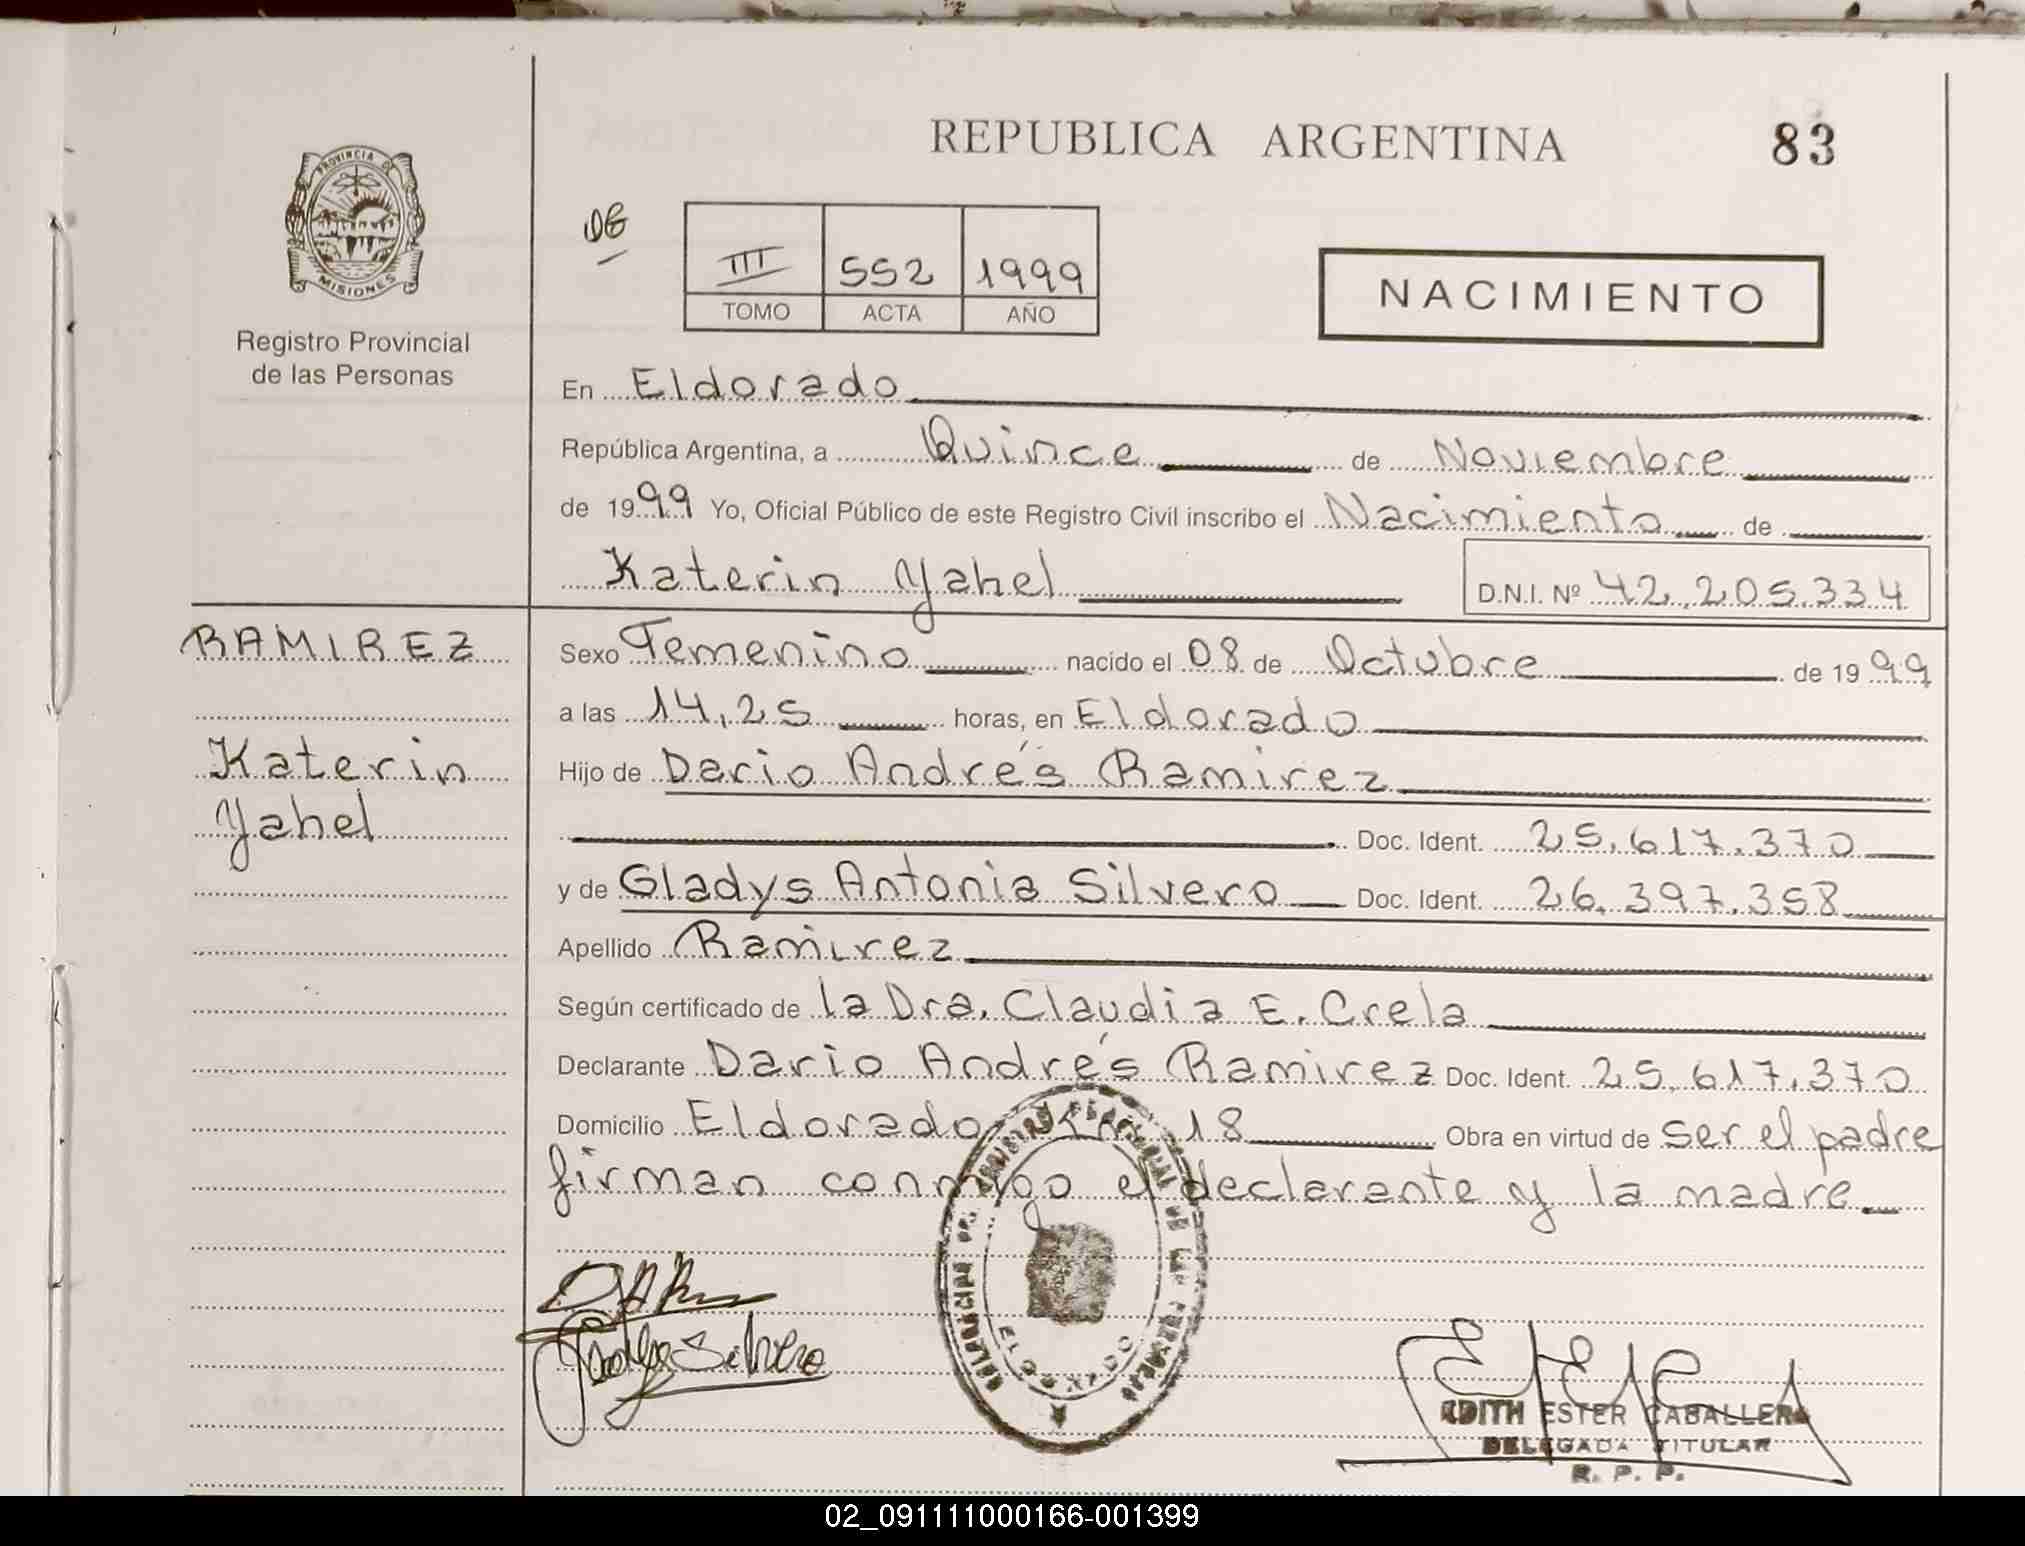 REPUBLICA ARGENTINA
83
PROVINCIA DE
MISIONES
Registro Provincial
de las Personas
III 552 1999
TOMO ACTA AÑO
NACIMIENTO
En Eldorado
República Argentina, a Quince de Noviembre
de 1999 Yo, Oficial Público de este Registro Civil inscribo el Nacimiento de
Katerin Yahel D.N.I. Nº 42.205.334
RAMIREZ
Katerin
Yahel
Sexo Femenino nacido el 08 de Octubre de 1999
a las 14,25 horas, en Eldorado
Hijo de Dario Andrés Ramirez
Doc. Ident. 25.617.370
y de Gladys Antonia Silvero Doc. Ident. 26.397.358
Apellido Ramirez
Según certificado de la Dra. Claudia E. Crela
Declarante Dario Andrés Ramirez Doc. Ident. 25.617.370
Domicilio Eldorado Km 18 Obra en virtud de ser el padre
firman conmigo el declarante y la madre
ELDORADO
Silvero
EDITH ESTER CABALLERO
DELEGADA TITULAR
R. P. P.
02_091111000166-001399